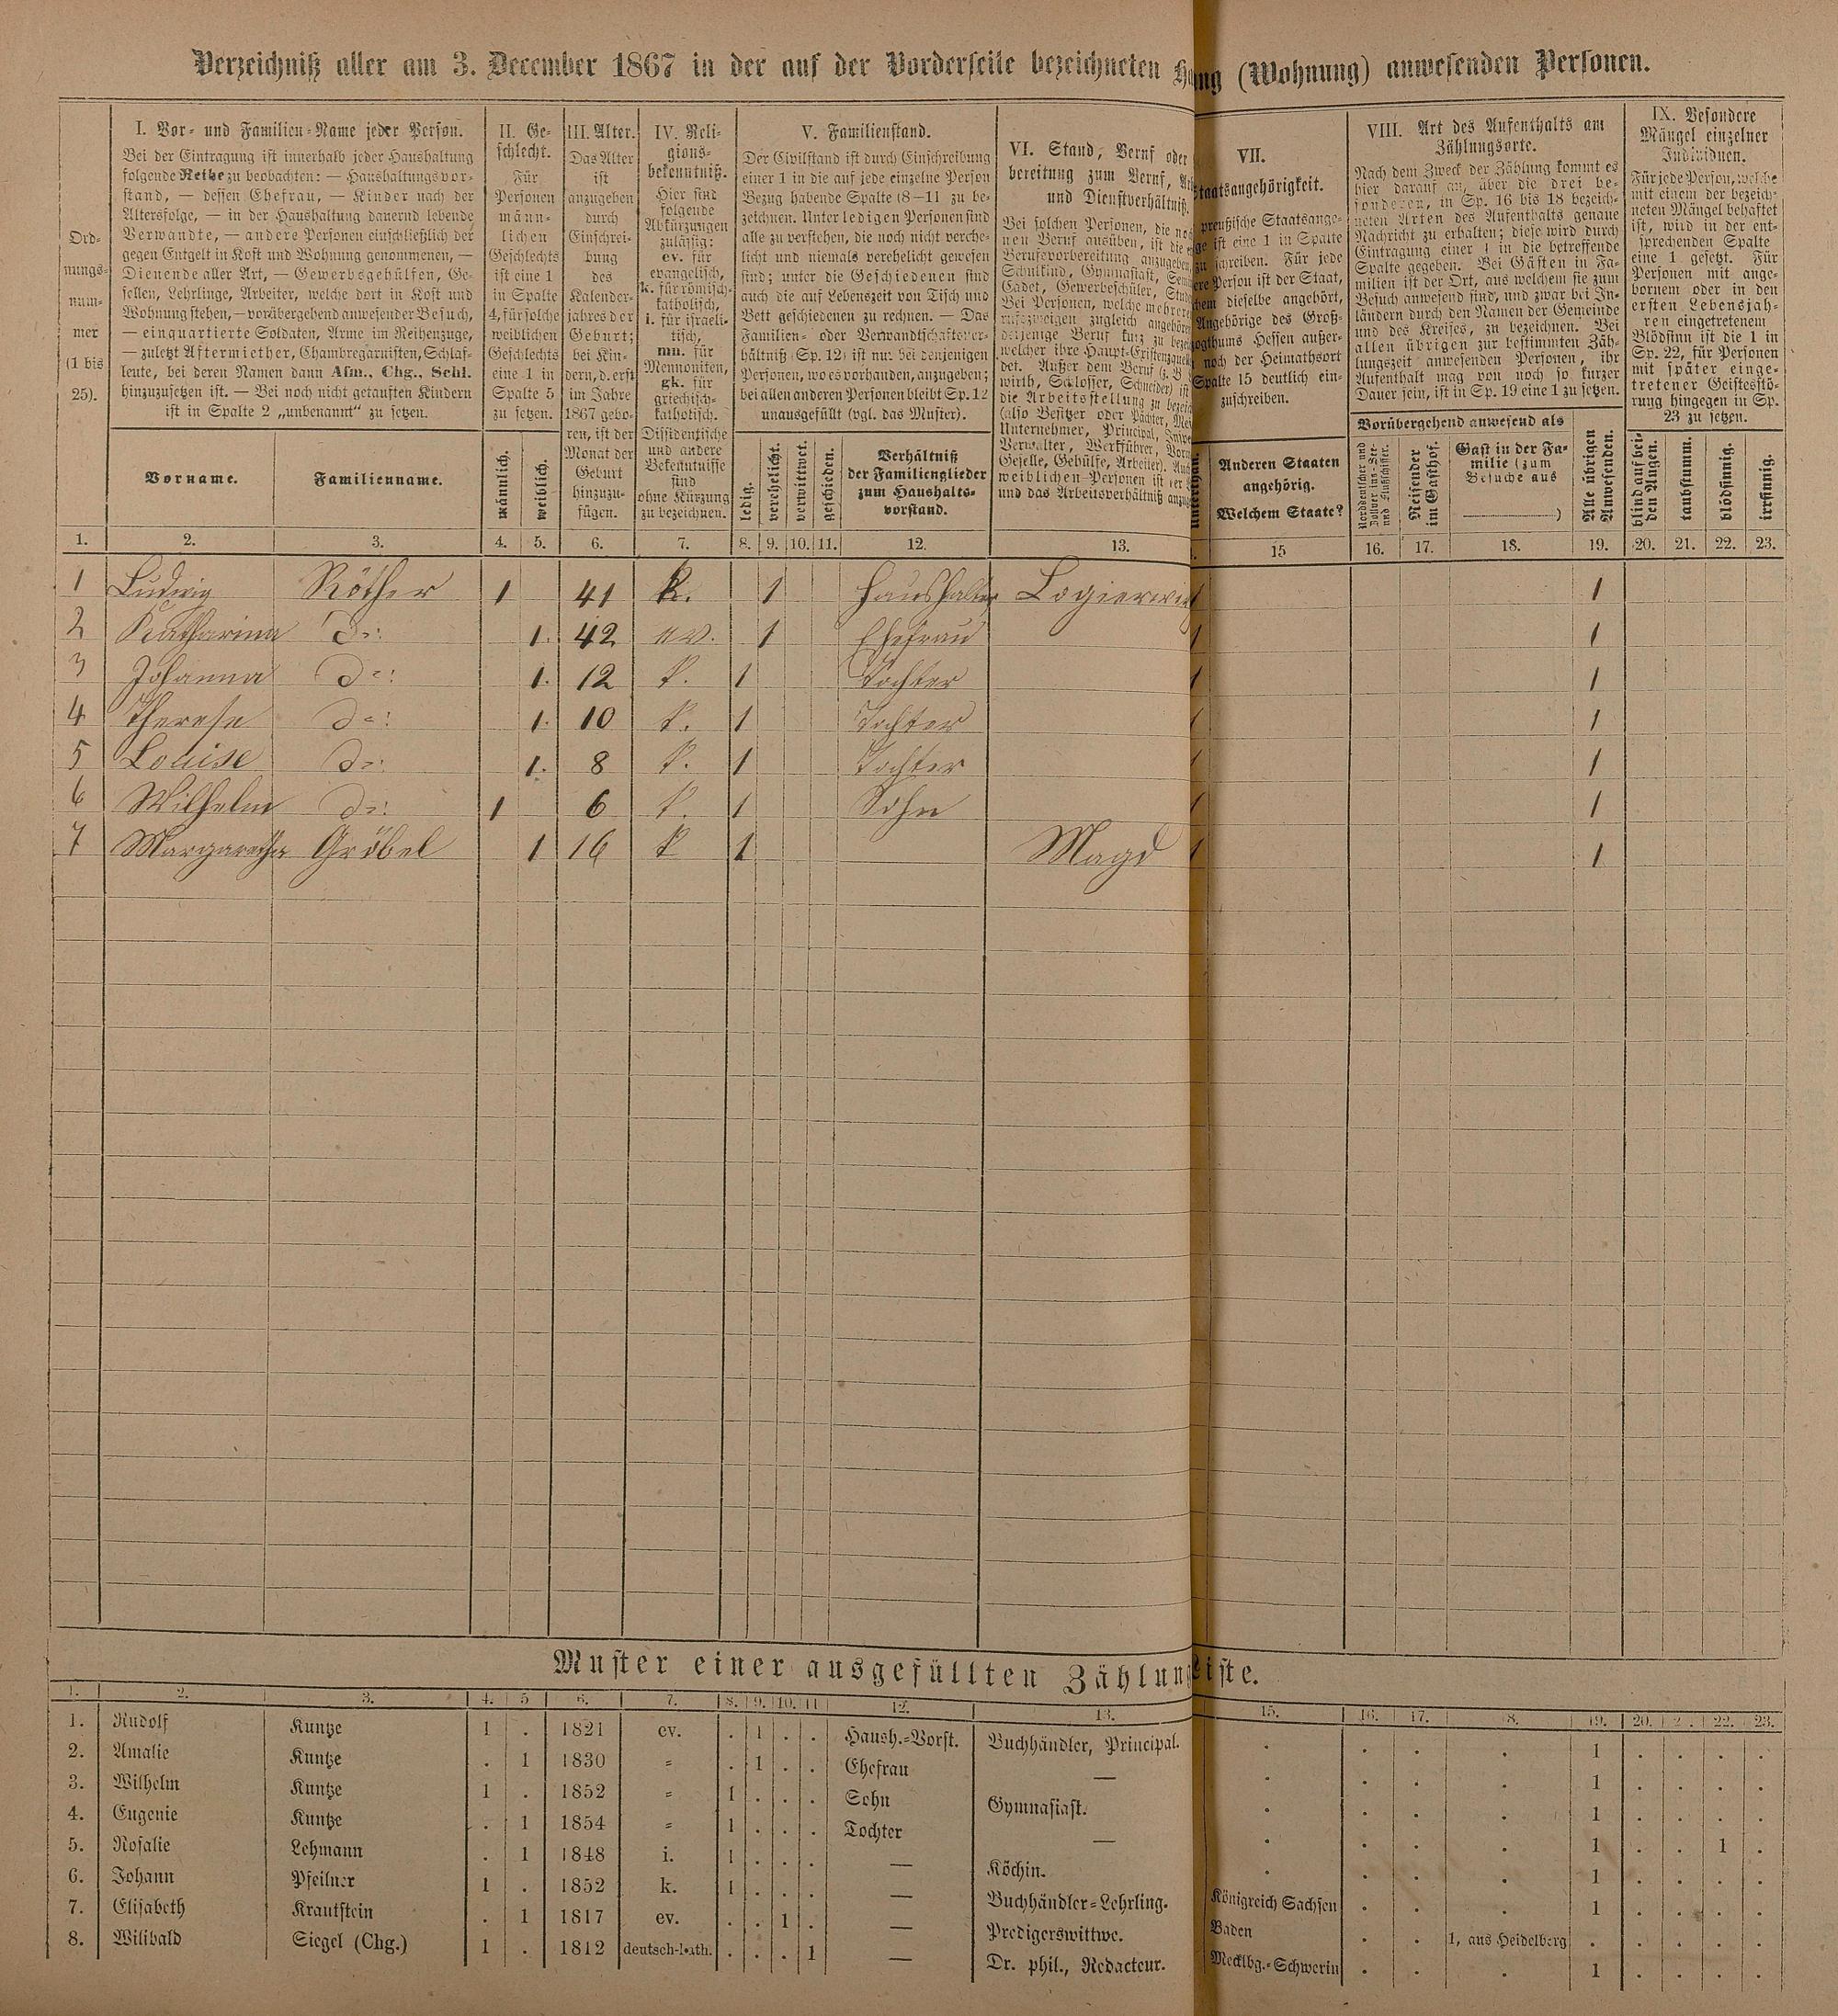 Verzeichniß aller am 3. December 1867 in der auf der Vorderseite bezeichneten Ha ng (Wohnung) anwesenden Personen.
Ord-
nungs-
num-
mer
(1 bis
25).
I. Vor- und Familien-Name jeder Person.
Bei der Eintragung ist innerhalb jeder Haushaltung
folgende Reihe zu beobachten: — Haushaltungsvor-
stand, — dessen Ehefrau, — Kinder nach der
Altersfolge, — in der Haushaltung dauernd lebende
Verwandte, — andere Personen einschließlich der
gegen Entgelt in Kost und Wohnung genommenen, —
Dienende aller Art, — Gewerbsgehülfen, Ge-
sellen, Lehrlinge, Arbeiter, welche dort in Kost und
Wohnung stehen, — vorübergehend anwesender Besuch,
— einquartierte Soldaten, Arme im Reihenzuge,
— zuletzt Aftermiether, Chambregarnisten, Schlaf-
leute, bei deren Namen dann Afm., Chg., Schl.
hinzuzusetzen ist. — Bei noch nicht getauften Kindern
ist in Spalte 2 „unbenannt“ zu setzen.
Vorname.
Familienname.
II. Ge-
schlecht.
Für
Personen
männ-
lichen
Geschlechts
ist eine 1
in Spalte
4, für solche
weiblichen
Geschlechts
eine 1 in
Spalte 5
zu setzen.
männlich.
weiblich.
III. Alter.
Das Alter
ist
anzugeben
durch
Einschrei-
bung
des
Kalender-
jahres der
Geburt;
bei Kin-
dern, d. erst
im Jahre
1867 gebo-
ren, ist der
Monat der
Geburt
hinzuzu-
fügen.
IV. Reli-
gions-
bekenntniß.
Hier sind
folgende
Abkürzungen
zulässig:
ev. für
evangelisch,
k. für römisch-
katholisch,
i. für israeli-
tisch,
mn. für
Mennoniten,
gk. für
griechisch-
katholisch.
Dissidentische
und andere
Bekenntnisse
sind
ohne Kürzung
zu bezeichnen.
V. Familienstand.
Der Civilstand ist durch Einschreibung
einer 1 in die auf jede einzelne Person
Bezug habende Spalte (8—11) zu be-
zeichnen. Unter ledigen Personen sind
alle zu verstehen, die noch nicht verehe-
licht und niemals verehelicht gewesen
sind; unter die Geschiedenen sind
auch die auf Lebenszeit von Tisch und
Bett geschiedenen zu rechnen. — Das
Familien- oder Verwandtschaftsver-
hältniß (Sp. 12) ist nur bei denjenigen
Personen, wo es vorhanden, anzugeben;
bei allen anderen Personen bleibt Sp. 12
unausgefüllt (vgl. das Muster).
ledig.
verehelicht.
verwittwet.
geschieden.
Verhältniß
der Familienglieder
zum Haushalts-
vorstand.
VI. Stand, Beruf oder
bereitung zum Beruf,
und Dienstverhältniß.
Bei solchen Personen, die
nen Beruf ausüben, ist die
Berufsvorbereitung anzugeben,
Schulkind, Gymnasiast,
Cadet, Gewerbeschüler,
Bei Personen, welche mehreren
rufszweigen zugleich angehören
derjenige Beruf kurz zu
welcher ihre Haupt-Existenzquelle
det. Außer dem Beruf (z. B.
wirth, Schlosser, Schneider) ist
die Arbeitsstellung zu
(also Besitzer oder Pächter,
Unternehmer, Principal,
Verwalter, Werkführer,
Geselle, Gehülfe, Arbeiter).
weiblichen Personen ist der
und das Arbeitsverhältniß
VII.
taatsangehörigkeit.
preußische Staatsange-
ge ist eine 1 in Spalte
zu schreiben. Für jede
ere Person ist der Staat,
chem dieselbe angehört,
Angehörige des Groß-
ogthums Hessen außer-
noch der Heimathsort
Spalte 15 deutlich ein-
zuschreiben.
Anderen Staaten
angehörig.
Welchem Staate?
VIII. Art des Aufenthalts am
Zählungsorte.
Nach dem Zweck der Zählung kommt es
hier darauf an, über die drei be-
sonderen, in Sp. 16 bis 18 bezeich-
neten Arten des Aufenthalts genaue
Nachricht zu erhalten; diese wird durch
Eintragung einer 1 in die betreffende
Spalte gegeben. Bei Gästen in Fa-
milien ist der Ort, aus welchem sie zum
Besuch anwesend sind, und zwar bei In-
ländern durch den Namen der Gemeinde
und des Kreises, zu bezeichnen. Bei
allen übrigen zur bestimmten Zäh-
lungszeit anwesenden Personen, ihr
Aufenthalt mag von noch so kurzer
Dauer sein, ist in Sp. 19 eine 1 zu setzen.
Vorübergehend anwesend als
Norddeutscher und
Zollver.ins-See-
und Flußschiffer.
Reisender
im Gasthof.
Gast in der Fa-
milie (zum
Besuche aus
)
Alle übrigen
Anwesenden.
IX. Besondere
Mängel einzelner
Individuen.
Für jede Person, welche
mit einem der bezeich-
neten Mängel behaftet
ist, wird in der ent-
sprechenden Spalte
eine 1 gesetzt. Für
Personen mit ange-
bornem oder in den
ersten Lebensjah-
ren eingetretenem
Blödsinn ist die 1 in
Sp. 22, für Personen
mit später einge-
tretener Geistesstö-
rung hingegen in Sp.
23 zu setzen.
blind auf bei-
den Augen.
taubstumm.
blödsinnig.
irrsinnig.
1. 2. 3. 4. 5. 6. 7. 8. 9. 10. 11. 12. 13. 15 16. 17. 18. 19. 20. 21. 22. 23.
1 Ludwig Röther 1 41 k. 1 Haushalter Logierwir 1 1
2 Katharina do: 1. 42 ev. 1 Ehefrau 1 1
3 Johanna do: 1. 12 k. 1 Tochter 1 1
4 Therese do: 1. 10 k. 1 Tochter 1 1
5 Louise do: 1. 8 k. 1 Tochter 1 1
6 Wilhelm do: 1 6 k. 1 Sohn 1 1
7 Margaretha Gröbel 1 16 k 1 Magd 1 1
Muster einer ausgefüllten Zählungsliste.
1. 2. 3. 4. 5 6. 7. 8. 9. 10. 11 12. 13. 15. 16. 17. 18. 19. 20. 21. 22. 23.
1. Rudolf Kuntze 1 . 1821 ev. . 1 . . Haush.-Vorst. Buchhändler, Principal. . . . . 1 . . . .
2. Amalie Kuntze . 1 1830 „ . 1 . . Ehefrau — . . . . 1 . . . .
3. Wilhelm Kuntze 1 . 1852 „ 1 . . . Sohn Gymnasiast. . . . . 1 . . . .
4. Eugenie Kuntze . 1 1854 „ 1 . . . Tochter — . . . . 1 . . 1 .
5. Rosalie Lehmann . 1 1848 i. 1 . . . — Köchin. . . . . 1 . . . .
6. Johann Pfeilner 1 . 1852 k. 1 . . . — Buchhändler-Lehrling. Königreich Sachsen . . . 1 . . . .
7. Elisabeth Krautstein . 1 1817 ev. . . 1 . — Predigerswittwe. Baden . . 1, aus Heidelberg . . . . .
8. Wilibald Siegel (Chg.) 1 . 1812 deutsch-kath. . . . 1 — Dr. phil., Redacteur. Mecklbg.-Schwerin . . . 1 . . . .